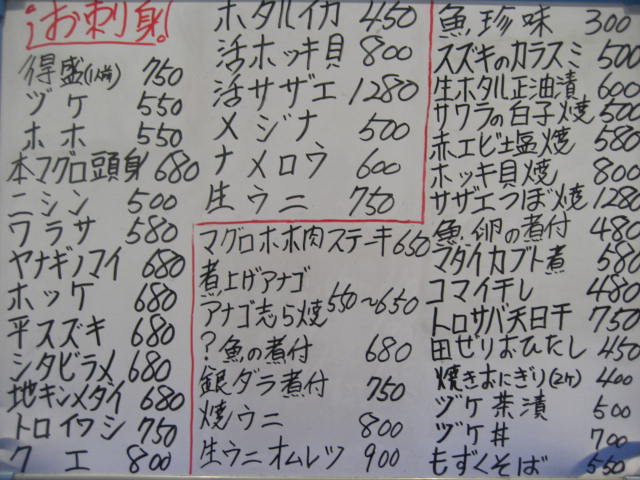 お刺身
得盛(1人前) 750
ヅケ 550
ホホ 550
本マグロ頭身 680
ニシン 500
ワラサ 580
ヤナギノマイ 680
ホッケ 680
平スズキ 680
シタビラメ 680
地キンメダイ 680
トロイワシ 750
クエ 800
ホタルイカ 450
活ホッキ貝 800
活サザエ 1280
メジナ 500
ナメロウ 600
生ウニ 750
マグロホホ肉ステーキ 650
煮上げアナゴ
アナゴ志ら焼 550〜650
?魚の煮付 680
銀ダラ煮付 750
焼ウニ 800
生ウニオムレツ 900
魚珍味 300
スズキのカラスミ 500
生ホタル正油漬 600
サワラの白子焼 500
赤エビ塩焼 580
ホッキ貝焼 800
サザエつぼ焼 1280
魚卵の煮付 480
マダイカブト煮 580
コマイ干し 480
トロサバ天日干 750
田ぜりおひたし 450
焼きおにぎり(2ケ) 400
ヅケ茶漬 500
ヅケ丼 700
もずくそば 550